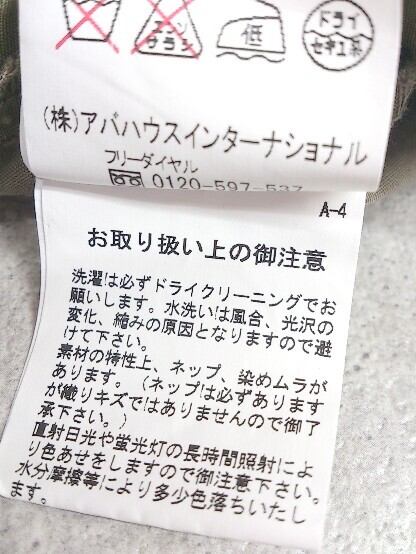 エンソ
サラシ
低
ドライ
セキユ系
(株)アバハウスインターナショナル
フリーダイヤル
0120-597-537
A-4
お取り扱い上の御注意
洗濯は必ずドライクリーニングでお
願いします。水洗いは風合、光沢の
変化、縮みの原因となりますので避
けて下さい。
素材の特性上、ネップ、染めムラが
あります。(ネップは必ずあります
が織りキズではありませんので御了
承下さい。)
直射日光や蛍光灯の長時間照射によ
り色あせをしますので御注意下さい。
水分摩擦等により多少色落ちいたし
ます。